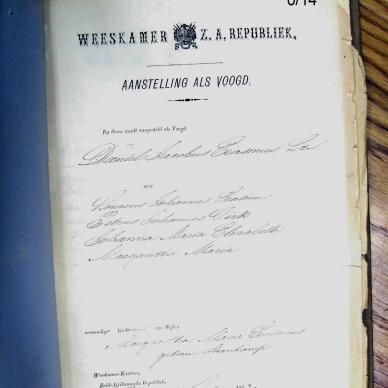 6/14
WEESKAMER Z. A. REPUBLIEK.
AANSTELLING ALS VOOGD.
By deze wordt aangesteld als Voogd
Daniel Jacobus Erasmus
over
Laurens Johannes Erasmus
Petrus Johannes Dirk
Johanna Maria Elizabeth
Margaretha Maria
minderjarige kinderen van Wylen
Erasmus
geboren
Weeskamer-Kantoor,
Zuid-Afrikaansche Republiek,